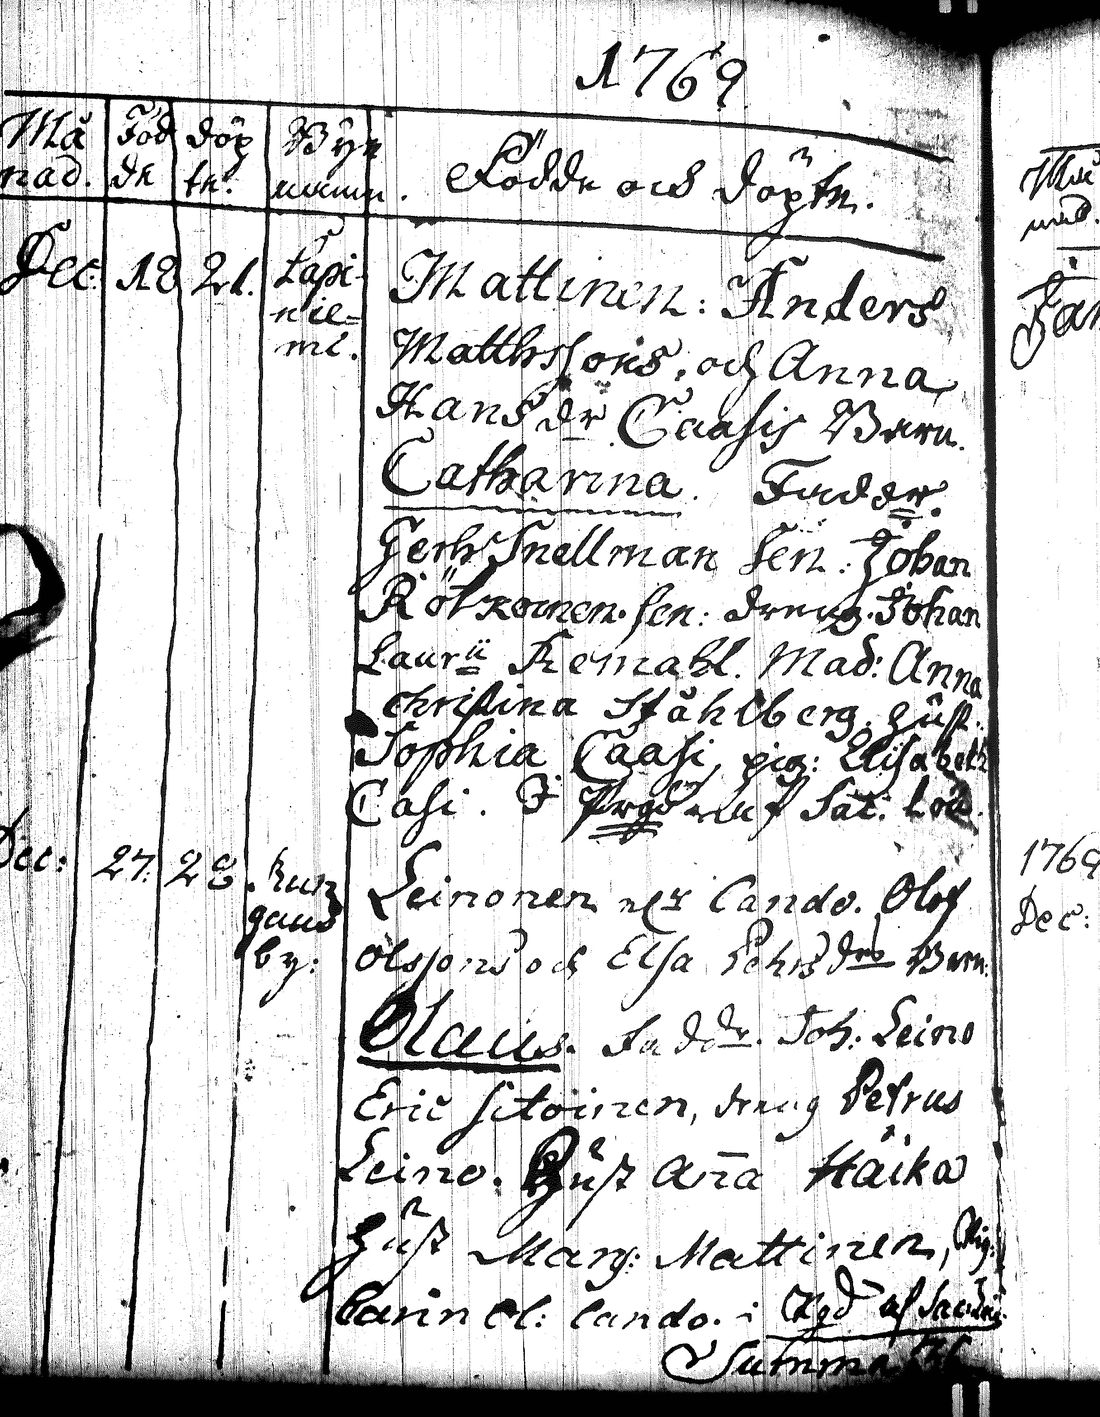 1769
Må nad. Föd de döp te. Byn
Födde och döpte.
Dec: 18 21. Lapi-
nie-
mi.
Mattinen: Anders
Matthssons, och Anna
Hans dr Caasis Barn.
Catharina. Faddr.
Gerh Snellman sen. Johan
Rötkönen sen: dreng. Johan
Laurii Remahl. Mad: Anna
Christina Ståhlberg. Hust.
Sophia Caasi, pig: Elisabeth
Casi. af Sac:
Dec: 27. 28. Kun
gans
by:
Leinonen Cando. Olof
Olssons och Elsa Pehrs drs Barn
Olaus. Faddr. Joh: Leino
Eric Sitoinen, dreng Petrus
Leino. Hust Aña Häikä
Hust Marg: Mattinen, Pig:
Carin Ol: Cando. i af
Summa
1769
Dec: